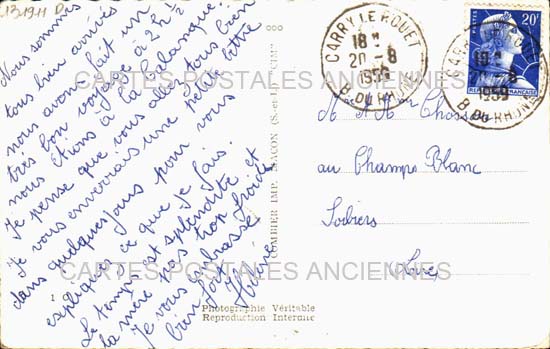 13.1911 D
Nous sommes
tous bien arrivés
nous avons fait un
très bon voyage à 2h ½
nous étions à la Calanque.
Je pense que vous allez tous bien
Je vous enverrais une petite lettre
dans quelques jours pour vous
expliquer ce que je fais.
Le temps est splendide et
la mère pas trop froide
Je vous embrasse
bien fort
Hélène
COMBIER IMP. MACON (S.-et-L.)
CARRY LE ROUET
18 H
20 - 8
1959
B. DU RHONE
POSTES
20F
REPUBLIQUE FRANÇAISE
CARRY
20 - 8
1959
B. DU RHONE
au Champs Blanc
Loire
CARTES POSTALES ANCIENNES
CARTES POSTALES ANCIENNES
Photographie Véritable
Reproduction Interdite